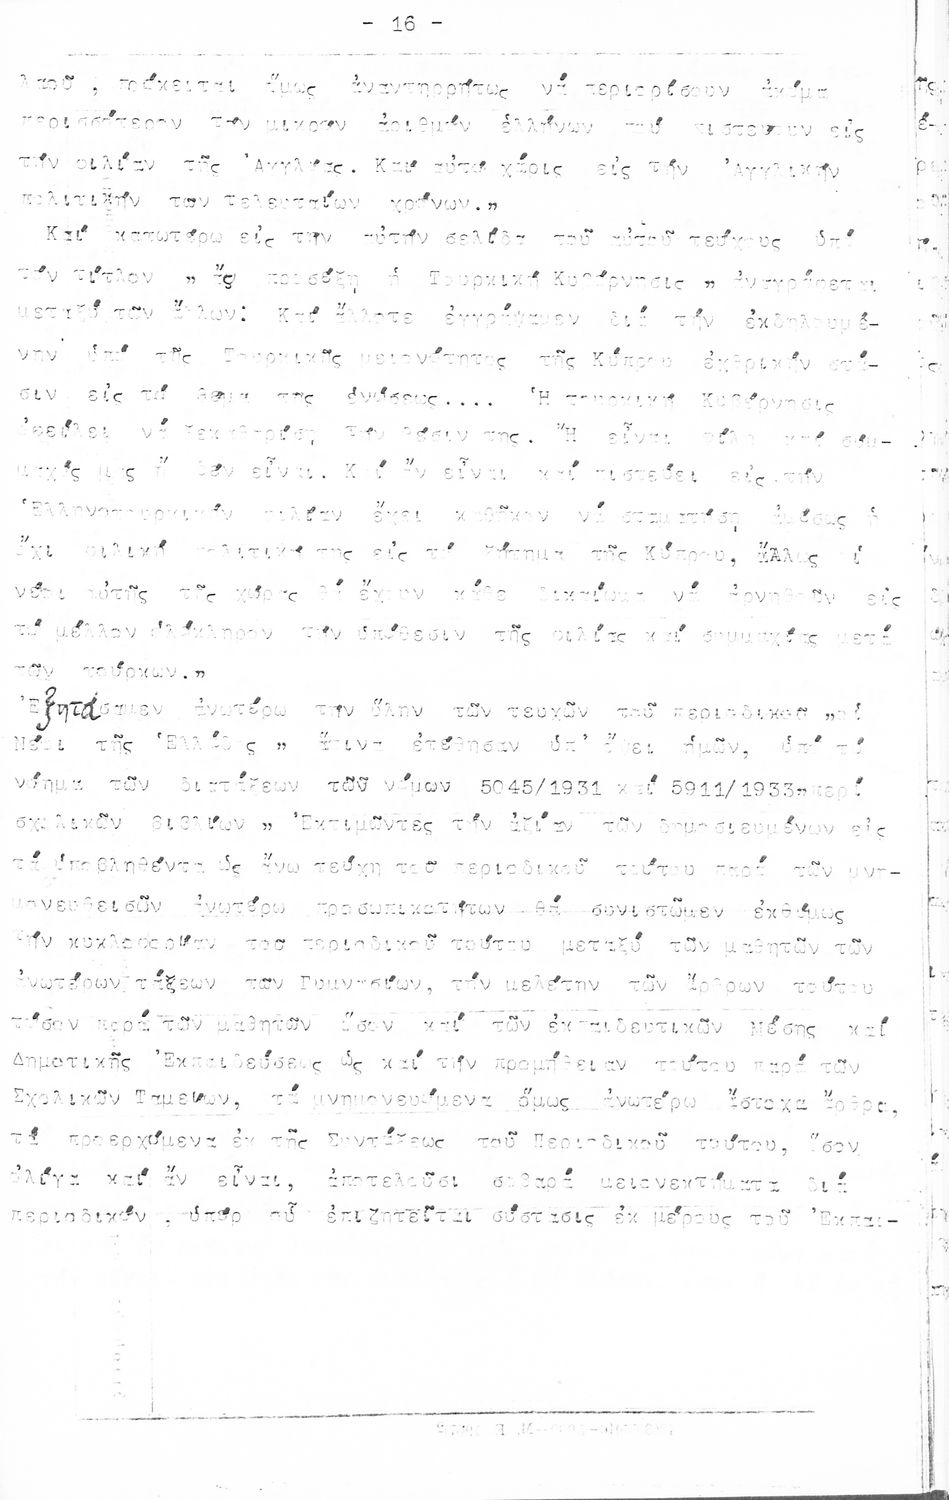 - 16 -
λαοῦ , πρόκειται ὅμως ἀναντιρρήτως νά περιορίσουν ἀκόμα
περισσότερον τόν μικρόν ἀριθμόν ἑλλήνων πού πιστεύουν εἰς
τήν φιλίαν τῆς 'Αγγλίας. Καί αὐτό χάρις εἰς τήν 'Αγγλικήν
πολιτικήν τῶν τελευταίων χρόνων.„
Καί κατωτέρω εἰς τήν αὐτήν σελίδα τοῦ αὐτοῦ τεύχους ὑπό
τόν τίτλον „ ἄς προσέξη ἡ Τουρκική Κυβέρνησις „ ἀναγράφεται
μεταξύ τῶν ἄλλων: Καί ἄλλοτε ἐγγράψαμεν διά τήν ἐκδηλουμέ-
νην ὑπό τῆς Τουρκικῆς μειονότητος τῆς Κύπρου ἐχθρικήν στά-
σιν εἰς τό θέμα τῆς ἑνώσεως.... 'Η τουρκική Κυβέρνησις
ὀφείλει νά ξεκαθαρίση τήν θέσιν της. Ἤ εἶναι φίλη καί σύμ-
μαχός μας ἤ δέν εἶναι. Καί ἄν εἶναι καί πιστεύει εἰς τήν
'Ελληνοτουρκικήν φιλίαν ἔχει καθῆκον νά σταματήση ἀμέσως ἡ
ὄχι φιλική πολιτική της εἰς τό ζήτημα τῆς Κύπρου, ἄΑλως οἱ
νέοι αὐτῆς τῆς χώρας θά ἔχουν κάθε δικαίωμα νά ἀρνηθοῦν εἰς
τό μέλλον ὁλόκληρον τήν ὑπόθεσιν τῆς φιλίας καί συμμαχίας μετά
τῶν τούρκων.„
'Εξητάσαμεν ἀνωτέρω τήν ὕλην τῶν τευχῶν τοῦ περιοδικοῦ „οἱ
Νέοι τῆς 'Ελλάδος „ ἅτινα ἐτέθησαν ὑπ' ὄψει ἡμῶν, ὑπό τό
νόημα τῶν διατάξεων τῶν νόμων 5045/1931 καί 5911/1933„περί
σχολικῶν βιβλίων „ 'Εκτιμῶντες τήν ἀξίαν τῶν δημοσιευμένων εἰς
τά ὑποβληθέντα ὡς ἄνω τεύχη τοῦ περιοδικοῦ τούτου παρά τῶν μνη-
μονευθεισῶν ἀνωτέρω προσωπικοτήτων θά συνιστῶμεν ἐκθύμως
τήν κυκλοφορίαν τοῦ περιοδικοῦ τούτου μεταξύ τῶν μαθητῶν τῶν
ἀνωτέρων τάξεων τῶν Γυμνασίων, τήν μελέτην τῶν ἄρθρων τούτου
τόσον παρά τῶν μαθητῶν ὅσον καί τῶν ἐκπαιδευτικῶν Μέσης καί
Δημοτικῆς 'Εκπαιδεύσεως ὡς καί τήν προμήθειαν τούτου παρά τῶν
Σχολικῶν Ταμείων, τά μνημονευόμενα ὅμως ἀνωτέρω ἄστοχα ἄρθρα,
τά προερχόμενα ἐκ τῆς Συντάξεως τοῦ Περιοδικοῦ τούτου, ὅσον
ὀλίγα καί ἄν εἶναι, ἀποτελοῦσι σοβαρά μειονεκτήματα διά
περιοδικόν , ὑπέρ οὗ ἐπιζητεῖται σύστασις ἐκ μέρους τοῦ 'Εκπαι-